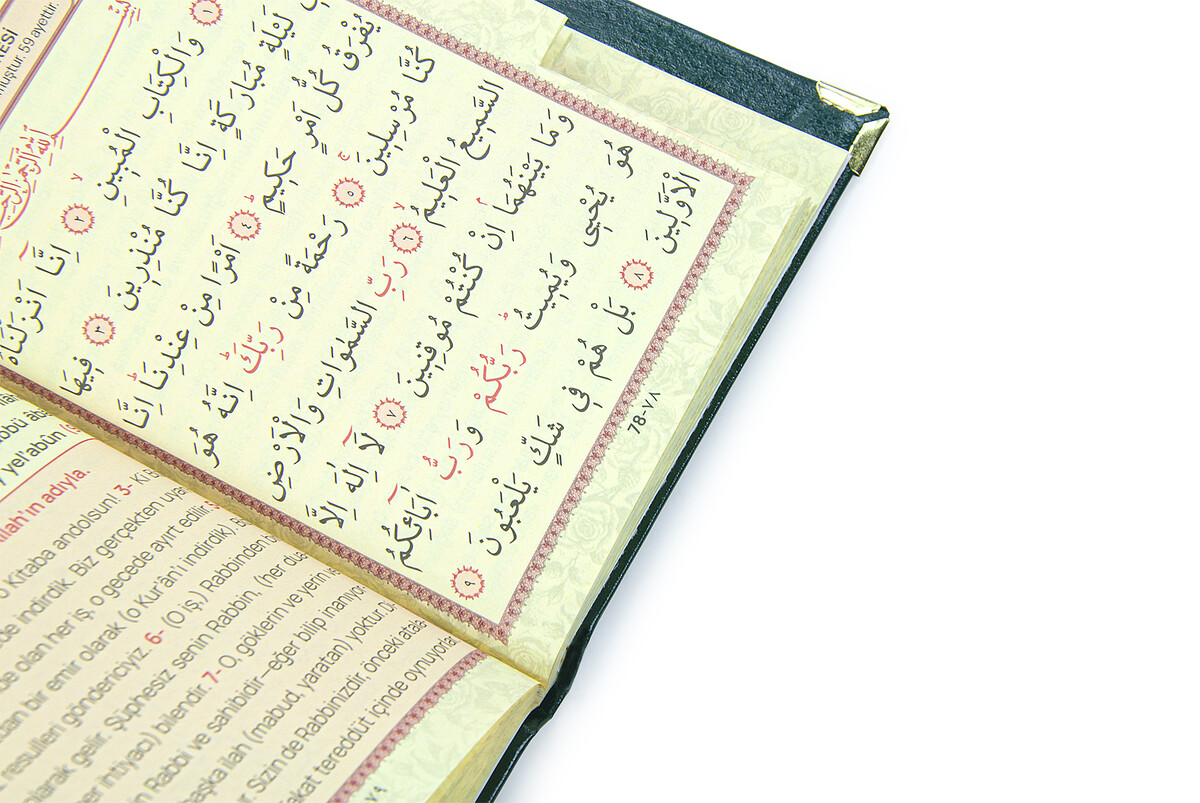 RESİ
muştur. 59 ayettir.
بِسْمِ اللّٰهِ الرَّحْمٰنِ الرَّحِيمِ
١ وَالْكِتَابِ الْمُبِينِ ٢ اِنَّٓا اَنْزَلْنَاهُ
لَيْلَةٍ مُبَارَكَةٍ اِنَّا كُنَّا مُنْذِرِينَ ٣ فِيهَا
يُفْرَقُ كُلُّ اَمْرٍ حَكِيمٍ ٤ اَمْرًا مِنْ عِنْدِنَا اِنَّا
كُنَّا مُرْسِلِينَ ٥ رَحْمَةً مِنْ رَبِّكَ اِنَّهُ هُوَ
السَّمِيعُ الْعَلِيمُ ٦ رَبِّ السَّمٰوَاتِ وَالْاَرْضِ
وَمَا بَيْنَهُمَا اِنْ كُنْتُمْ مُوقِنِينَ ٧ لَٓا اِلٰهَ اِلَّا
هُوَ يُحْيِي وَيُمِيتُ رَبُّكُمْ وَرَبُّ اٰبَٓائِكُمُ
الْاَوَّلِينَ ٨ بَلْ هُمْ فِي شَكٍّ يَلْعَبُونَ ٩
78-٧٨
yel'abûn
llah'ın adıyla.
o Kitaba andolsun! 3-
de indirdik. Biz gerçekten uya
de olan her iş, o gecede ayırt edilir.
dan bir emir olarak (o Kur'ân'ı indirdik).
resulleri göndericiyiz. 6- (O iş,) Rabbinden
olarak gelir. Şüphesiz senin Rabbin, (her dua
her ihtiyacı) bilendir. 7- O, göklerin ve yerin
in Rabbi ve sahibidir—eğer bilip inanıyor
başka ilah (mabud, yaratan) yoktur.
r. Sizin de Rabbinizdir, önceki atala
akat tereddüt içinde oynuyorla
٧٩